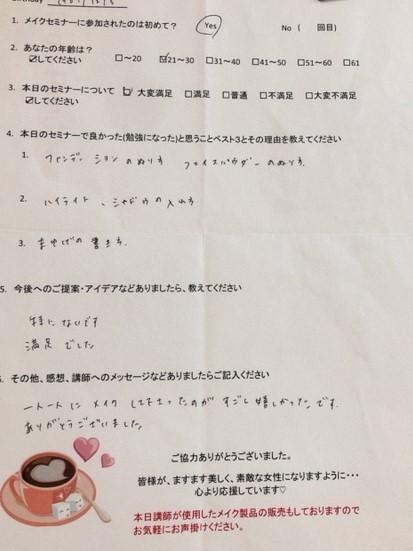 1. メイクセミナーに参加されたのは初めて？ Yes No ( 回目)
2. あなたの年齢は？ □～20 ☑21～30 □31～40 □41～50 □51～60 □61
☑してください
3. 本日のセミナーについて ☑ 大変満足 □満足 □普通 □不満足 □大変不満足
☑してください
4. 本日のセミナーで良かった(勉強になった)と思うことベスト3とその理由を教えてください
1. ファンデーションのぬり方 フェイスパウダーのぬり方
2. ハイライト、シャドウの入れ方
3. まゆげの書き方.
5. 今後へのご提案・アイデアなどありましたら、教えてください
特にないです
満足でした
6. その他、感想、講師へのメッセージなどありましたらご記入ください
メイク のがすごし嬉しかったです.
ありがとうございました
ご協力ありがとうございました。
皆様が、ますます美しく、素敵な女性になりますように･･･
心より応援しています♡
本日講師が使用したメイク製品の販売もしておりますので
お気軽にお声掛けください。